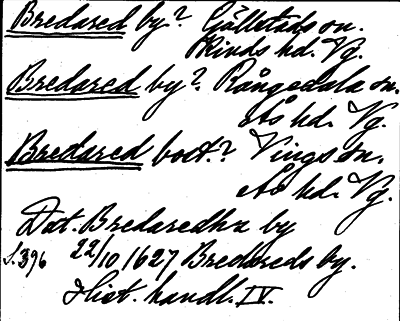 Bredared by? Gällstads sn.
Kinds hd. Vg.
Bredared by? Rångedala sn.
Ås hd. Vg.
Bredared bost.? Vings sn.
Ås hd. Vg.
Dat. Bredaredha by
s. 396 22/10 1627 Bredareds by.
Hist. handl. IV.